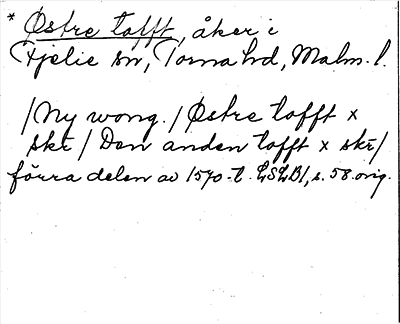 * Østre tofft, åker i
Fjelie sn, Torna hd, Malm. l.
/Ny wong. / Østre tofft x
skr / Den anden tofft x skr/
förra delen av 1570-t. LSLB1, s. 58 orig.